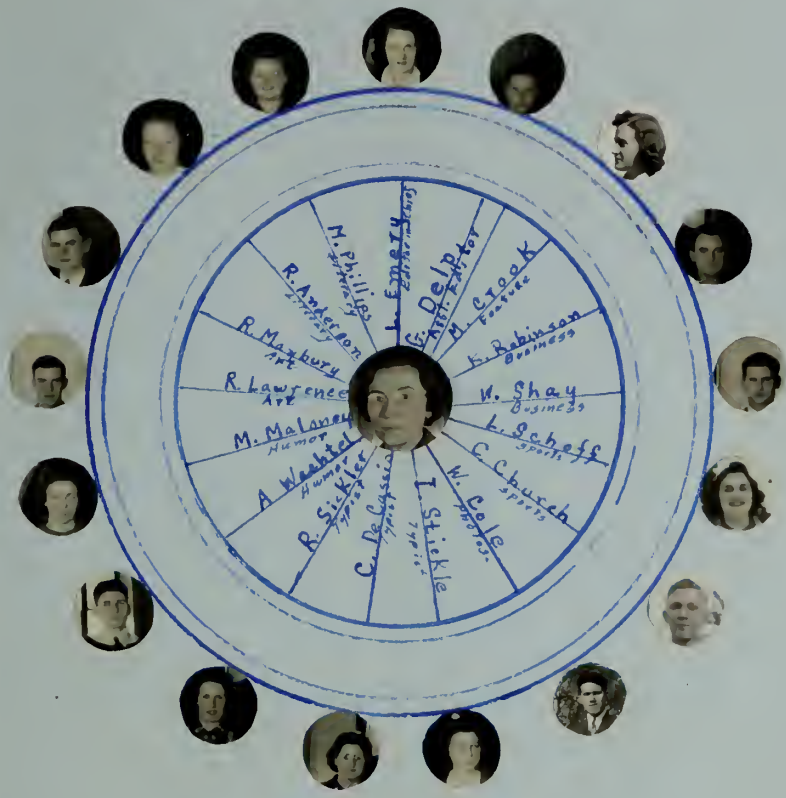 L. Emery
Editor in chief
G. Delp
Asst. Editor
M. Crook
Feature
K. Robinson
Business
W. Shay
Business
L. Schoff
Sports
C. Church
Sports
W. Cole
Photos.
I. Stickle
Typist
C. DeCassin
Typist
R. Sickler
Typist
A Wachtel
Humor
M. Maloney
Humor
R. Lawrence
Art
R. Maxbury
Art
R. Anderson
Literary
M. Phillips
Literary